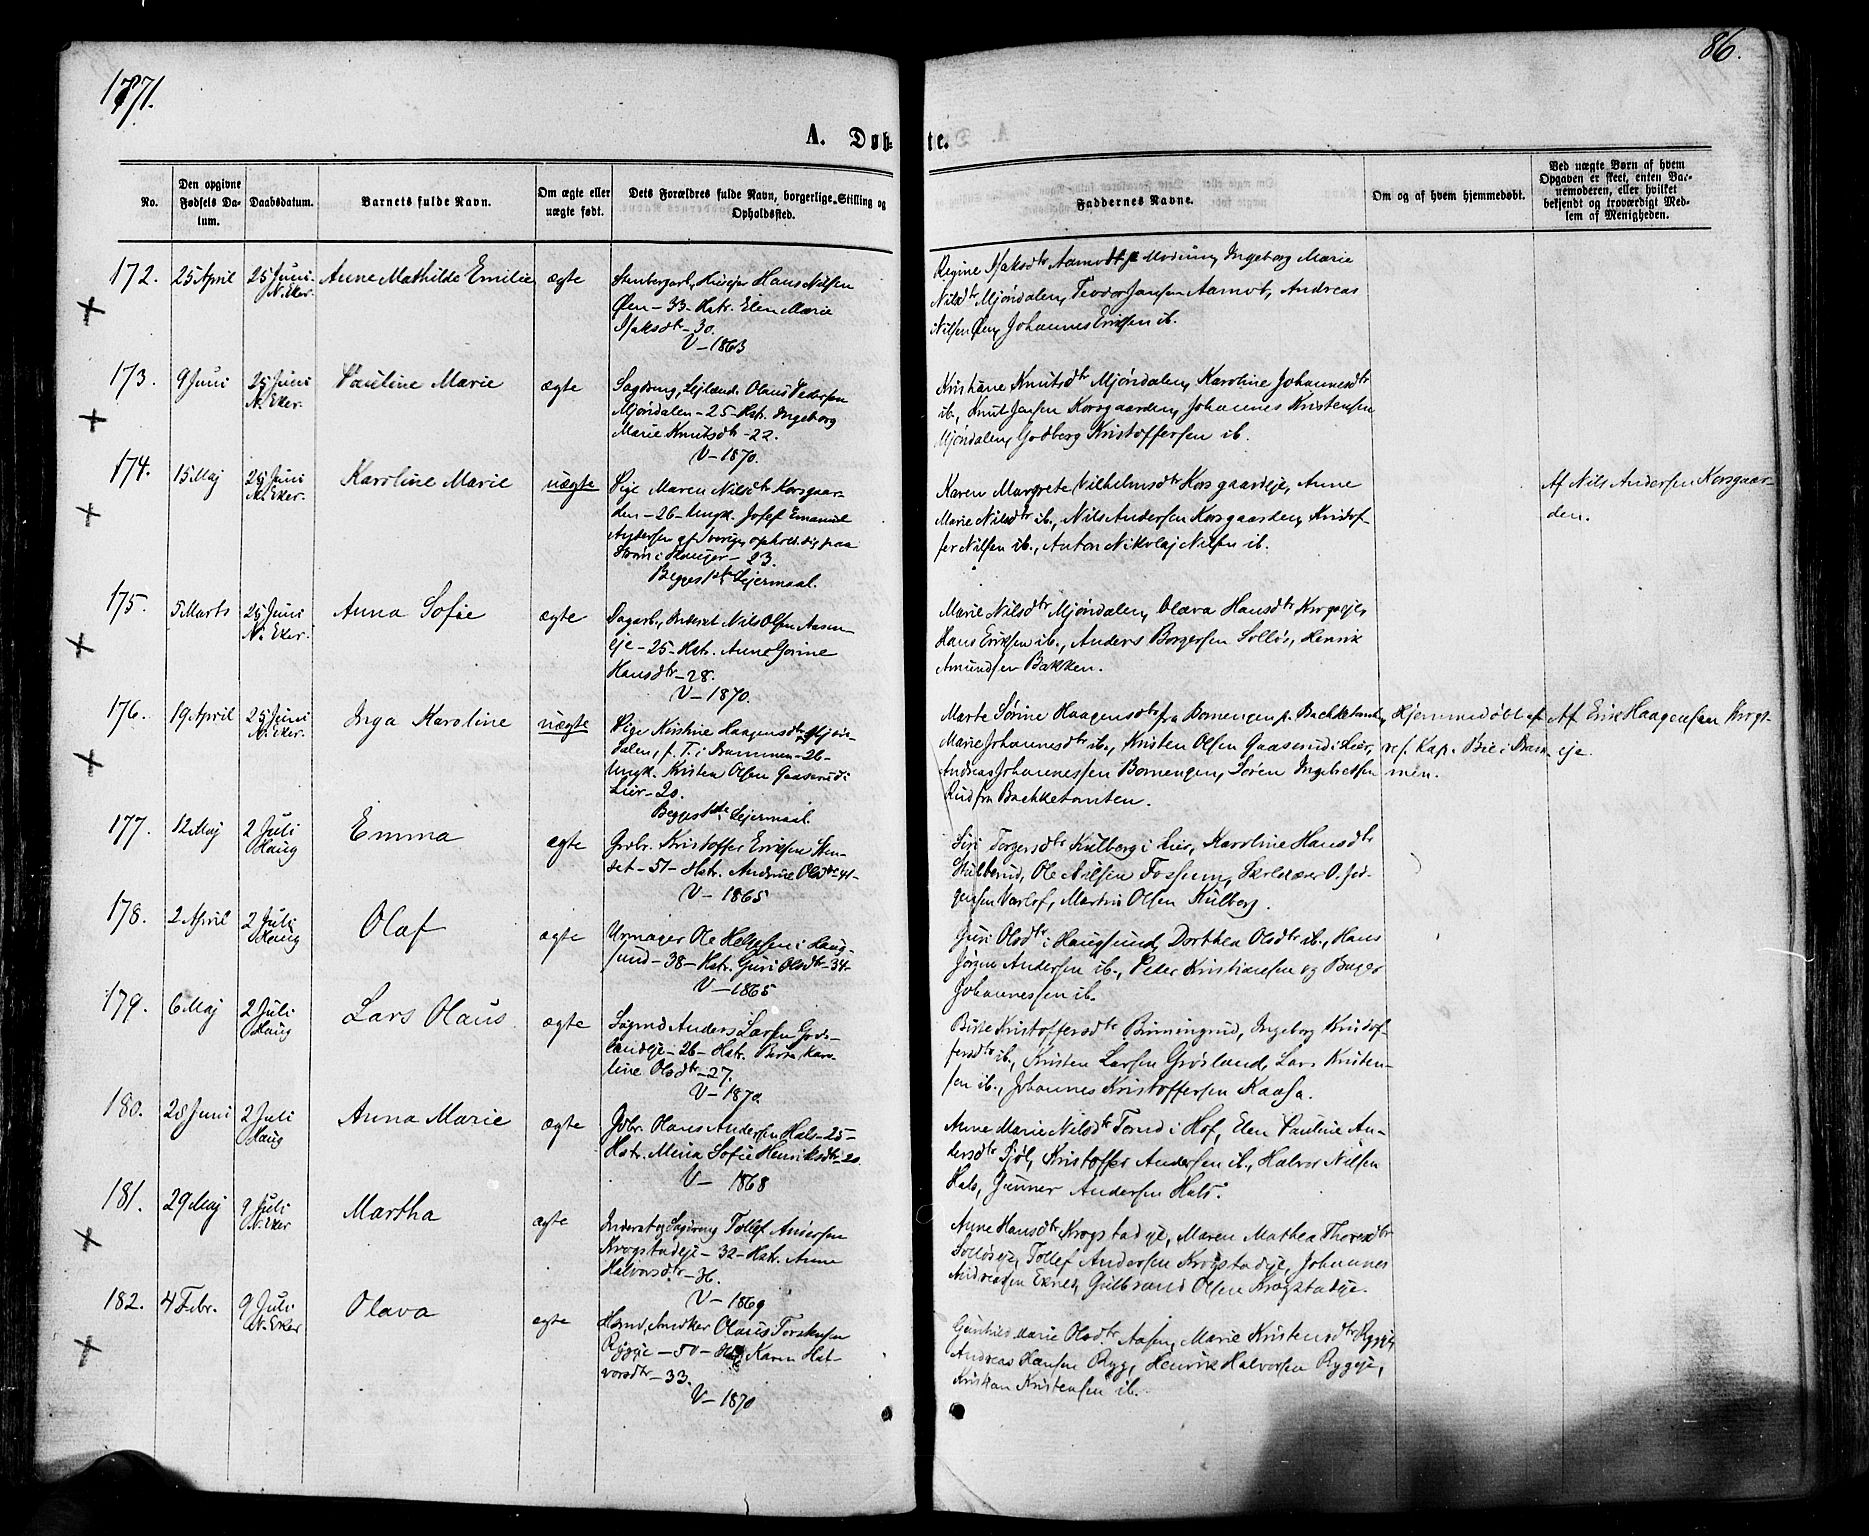 1871.
86.
A. Døbte.
No.
Den opgivne Fødsels Datum.
Daabsdatum.
Barnets fulde Navn.
Om ægte eller uægte født.
Dets Forældres fulde Navn, borgerlige Stilling og Opholdssted.
Faddernes Navne.
Om og af hvem hjemmedøbt.
Ved uægte Børn af hvem Opgaven er skeet, enten Barnemoderen, eller hvilket bekjendt og troværdigt Medlem af Menigheden.
172. 25 April 25 Juni N. Eker. Anne Mathilde Emilie ægte
Stenbergarb. Husejer Hans Nilsen
Øen - 33 - Hstr. Elen Marie
Isaksdtr - 30.
V - 1863
Regine Isaksdtr Aamodt p. Modum, Ingeborg Marie
Nilsdtr Mjøndalen, Teodor Jansen Aamot, Andreas
Nilsen Øen, Johannes Eriksen ib.
173. 9 Juni 25 Juni N. Eker. Pauline Marie ægte
Sagdreng, Lejlænd. Olaus Pedersen
Mjøndalen - 25 - Hstr. Ingeborg
Marie Knutsdtr - 22.
V - 1870.
Kristiane Knutsdtr Mjøndalen, Karoline Johannesdtr
ib., Knut Jensen Korsgaarden, Johannes Kristensen
Mjøndalen, Godberg Kristoffersen ib.
174. 15 Maj 25 Juni N. Eker. Karoline Marie uægte
Pige Maren Nilsdtr Korsgaar-
den - 26 - Ungk. Josef Emanuel
Andersen af Sverige, ophold. sig paa
Strøm i Hauger - 23.
Begges 1ste Lejermaal.
Karen Margrete Vilhelmsdtr Korsgaardeje, Anne
Marie Nilsdtr ib., Nils Andersen Korsgaarden, Kristof-
fer Nilsen ib., Anton Nikolaj Nilsen ib.
Af Nils Andersen Korsgaar-
den.
175. 5 Marts 25 Juni N. Eker. Anna Sofie ægte
Dagarb., Inderst Nils Olsen Aasen-
eje - 25 - Hstr. Anne Gorine
Hansdtr - 28.
V - 1870.
Marie Nilsdtr Mjøndalen, Olava Hansdtr Krogseje,
Hans Eriksen ib., Anders Borgersen Solløs, Henrik
Amundsen Bakken.
176. 19 April 25 Juni N. Eker. Inga Karoline uægte
Pige Kirstine Haagensdtr Mjøn-
dalen, f. T. i Drammen - 26 -
Ungk. Kristen Olsen Gaaserud i
Lier - 20.
Begges 1ste Lejermaal.
Marte Sørine Haagensdtr fra Bomengen p. Bachketomten,
Marie Johannesdtr ib., Kristen Olsen Gaaserud i Lier,
Andreas Johannessen Bomengen, Søren Ingebretsen
Rud fra Bachketomten.
Hjemmedøbt af
res. Kap. Bie i Dram-
men.
Af Erik Haagensen Krogs-
eje.
177. 12 Maj 2 Juli Haug Emma ægte
Grdbr. Kristoffer Eriksen Sten-
set - 51 - Hstr. Andrine Olsdtr - 41 -
V - 1865
Siri Torgersdtr Kulborg i Lier, Karoline Hansdtr
Stubberud, Ole Nilsen Fossum, Skolelærer O. Jør-
gensen Varlof, Martin Olsen Kulborg.
178. 2 April 2 Juli Haug Olaf ægte
Urmager Ole Helgesen i Haug-
sund - 38 - Hstr. Guri Olsdtr - 34 -
V - 1865
Guri Olsdtr i Haugsund, Dorthea Olsdtr ib., Hans
Jørgen Andersen ib., Peder Kristiansen og Bager
Johannessen ib.
179. 6 Maj 2 Juli Haug Lars Olaus ægte
Sagmd Anders Larsen Grøs-
landeje - 26 - Hstr. Berte Karo-
line Olsdtr - 27.
V - 1870.
Birte Kristoffersdtr Bruningrud, Ingeborg Kristof-
fersdtr ib., Kristen Larsen Grøsland, Lars Kristen-
sen ib., Johannes Kristoffersen Kaasa.
180. 28 Juni 2 Juli Haug Anna Marie ægte
Grdbr. Hans Andersen Hals - 25 -
Hstr. Mina Sofie Henriksdtr - 20.
V - 1868
Anne Marie Nilsdtr Tomd i Hof, Elen Pauline An-
dersdtr Fjøl, Kristoffer Andersen ib., Halvor Nilsen
Hals, Gunner Andersen Hals.
181. 29 Maj 9 Juli N. Eker Martha ægte
Inderst og Sagdreng Tollef Andersen
Krogstadeje - 32 - Hstr. Anne
Halvorsdtr - 36.
V - 1869
Anne Hansdtr Krogstadeje, Maren Mathea Thoresdtr
Solløseje, Tollef Andersen Krogstadeje, Johannes
Andreasen Eknes, Gulbrand Olsen Krogstadeje.
182. 4 Febr. 9 Juli N. Eker Olava ægte
Hsmd, Snedker Olaus Torstensen
Ryggeje - 50 - Hst. Karen Hal-
vorsdtr - 33.
V - 1870
Gunhild Marie Olsdtr Aasen, Marie Kristensdtr Ryggeje,
Andreas Hansen Ryg, Henrik Halvorsen Ryggeje,
Kristian Kristensen ib.